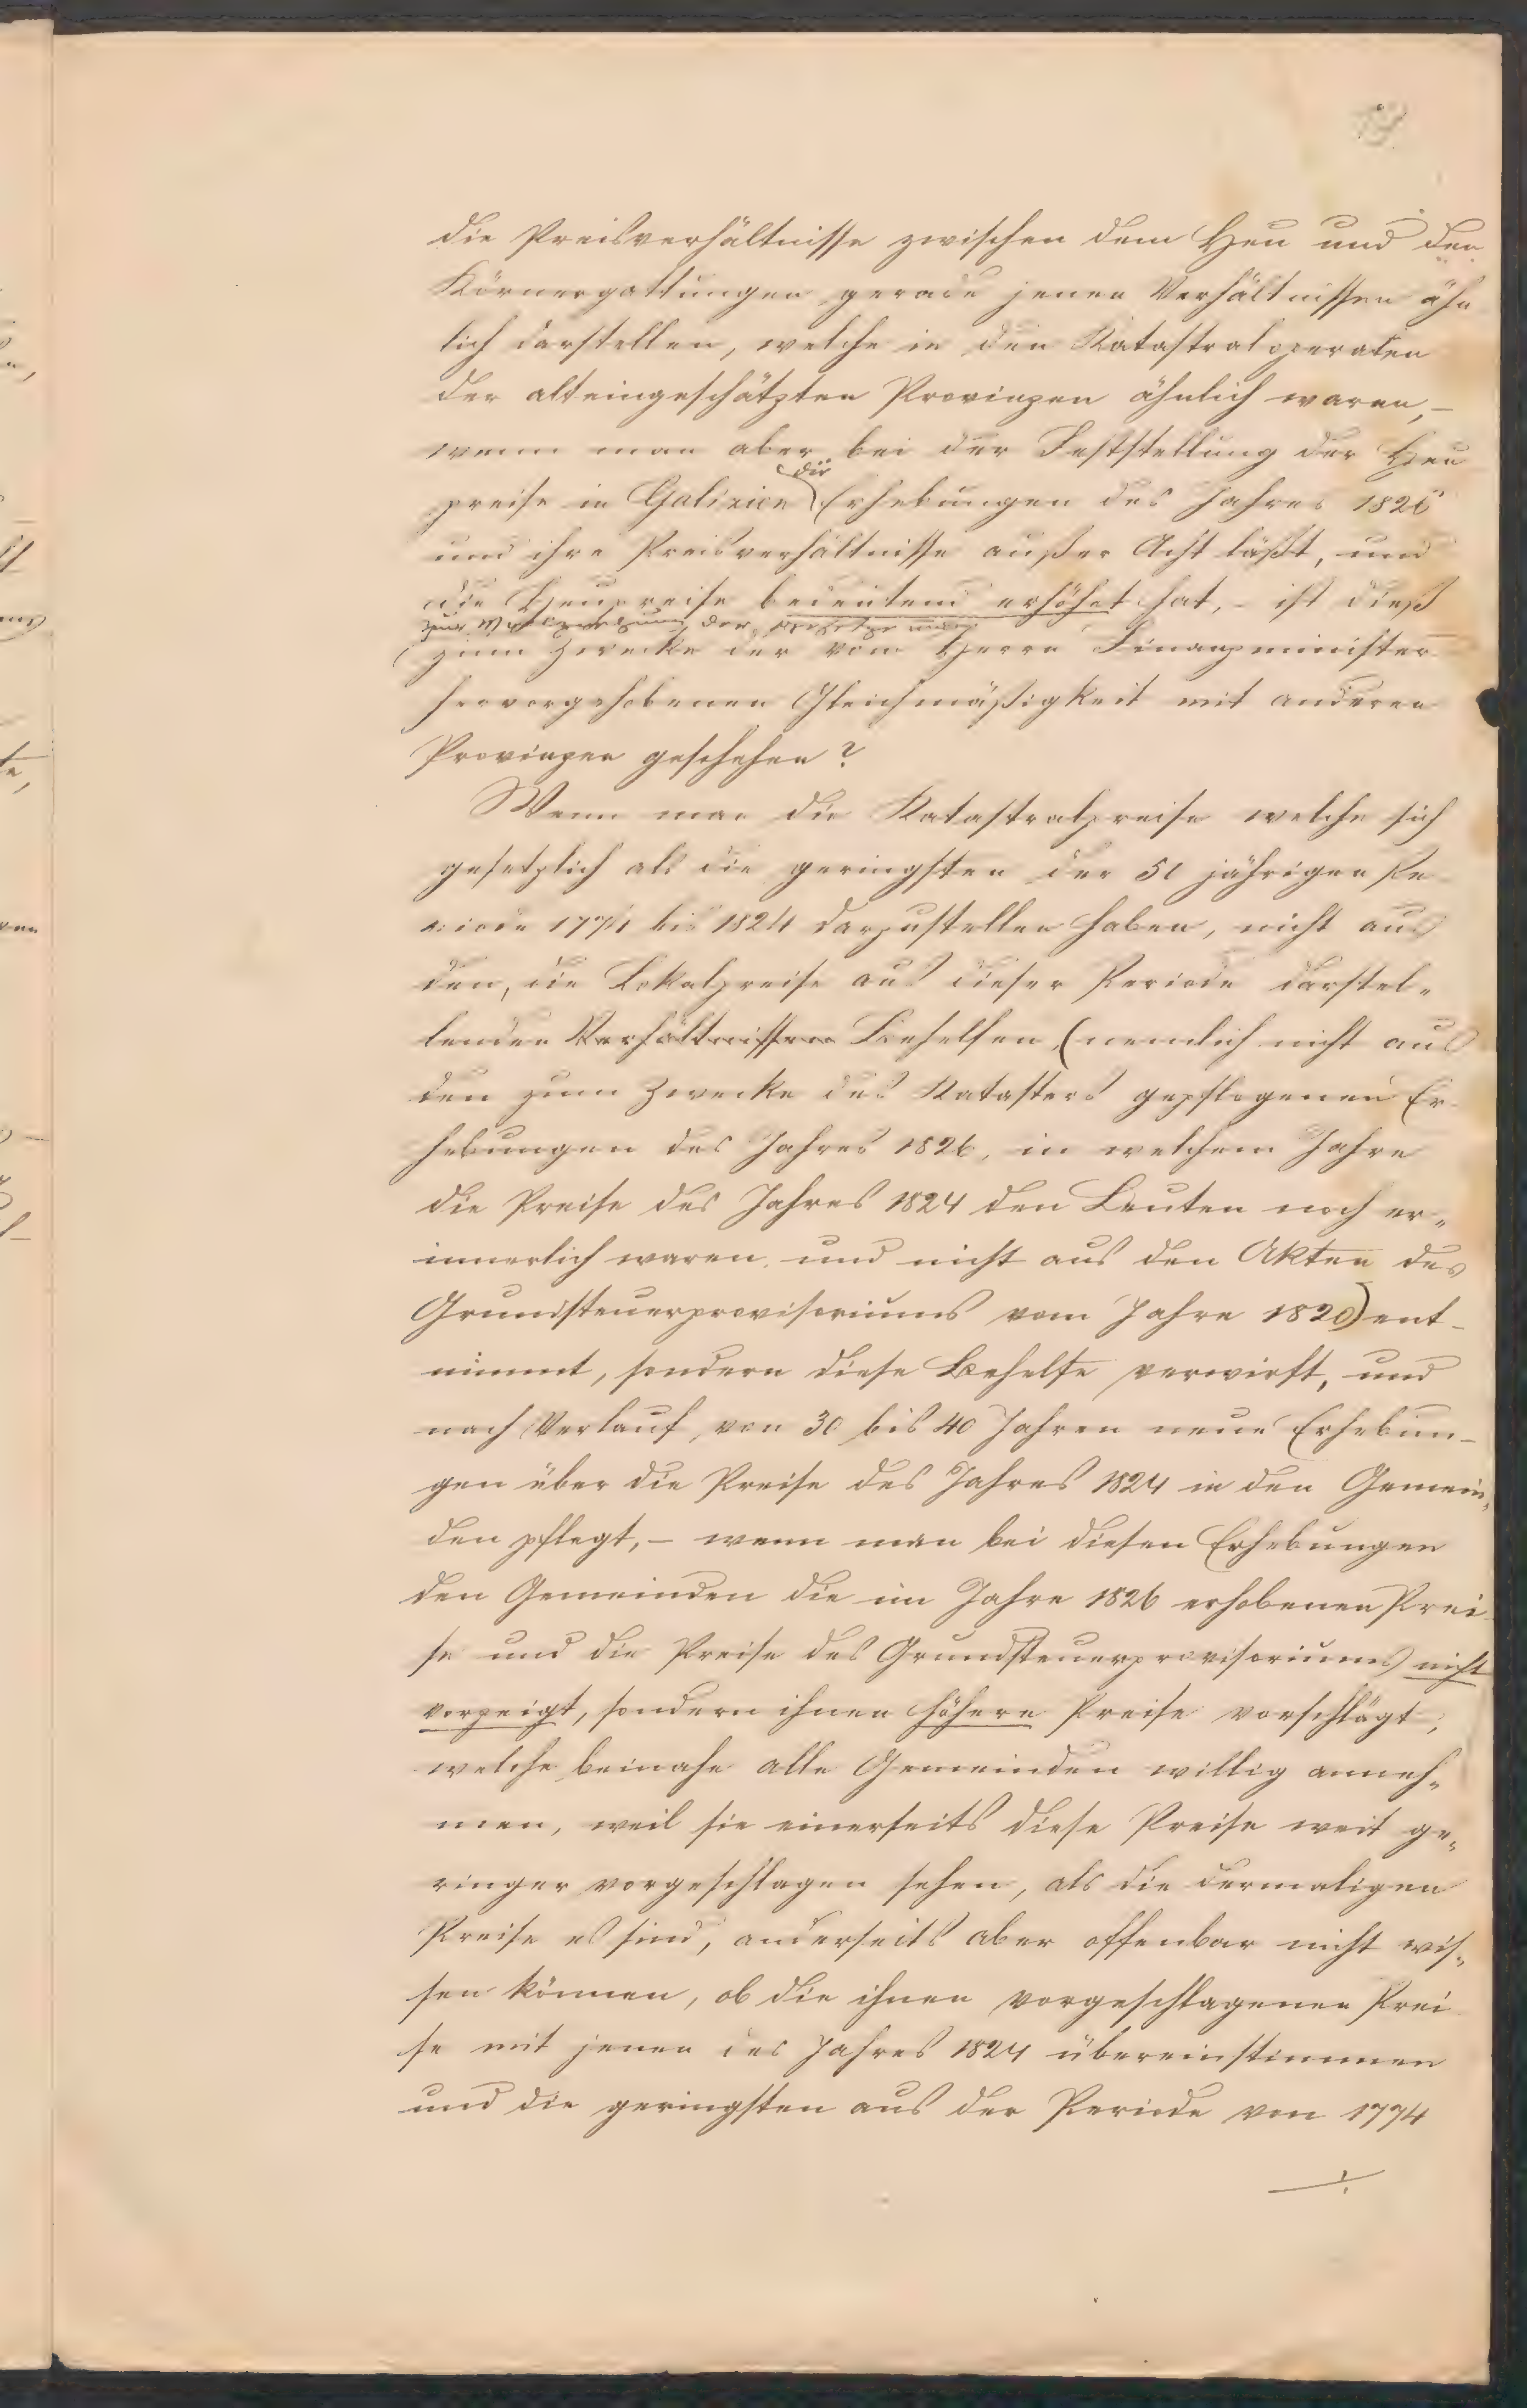 die Preisverhältnisse zwischen dem Heu und den
Körnergattungen gerade jenen Verhältnissen ähn
lich darstellen, welche in den Katastraloperaten
der alteingeschätzten Provinzen ähnlich waren, –
wenn man aber bei der Feststellung der Heu
die
preise in Galizien Erhebungen des Jahres 1826
und ihre Preisverhältnisse außer Acht läßt, und
die Heupreise bedeutend erhöhet hat, – ist dieß
zur der
zum Zwecke der vom Herrn Finanzminister
hervorgehobenen Gleichmäßigkeit mit anderen
Provinzen geschehen?
Wenn man die Katastralpreise welche sich
gesetzlich als die geringsten der 50 jährigen Pe-
riode 1774 bis 1824 darzustellen haben, nicht aus
den, die Lokalpreise aus dieser Periode darstel-
lenden Verhältnissen Behelfen, (nemlich nicht aus
den zum Zwecke des Katasters gepflogenen Er-
hebungen des Jahres 1826, in welchem Jahre
die Preise des Jahres 1824 den Leuten noch er-
innerlich waren, und nicht aus den Akten des
Grundsteuerprovisoriums vom Jahre 1820) ent-
nimmt, sondern diese Behelfe verwirft, und
nach Verlauf, von 30 bis 40 Jahren neue Erhebun-
gen über die Preise des Jahres 1824 in den Gemein-
den pflegt, – wenn man bei diesen Erhebungen
den Gemeinden die im Jahre 1826 erhobenen Prei-
se und die Preise des Grundsteuerprovisoriums nicht
vorzeigt, sondern ihnen höhere Preise vorschlägt,
welche beinahe alle Gemeinden willig anneh-
men, weil sie einerseits diese Preise weit ge-
ringer vorgeschlagen sehen, als die dermaligen
Preise es sind, anderseits aber offenbar nicht wis-
sen können, ob die ihnen vorgeschlagenen Prei
se mit jenen des Jahres 1824 übereinstimmen
und die geringsten aus der Periode von 1774